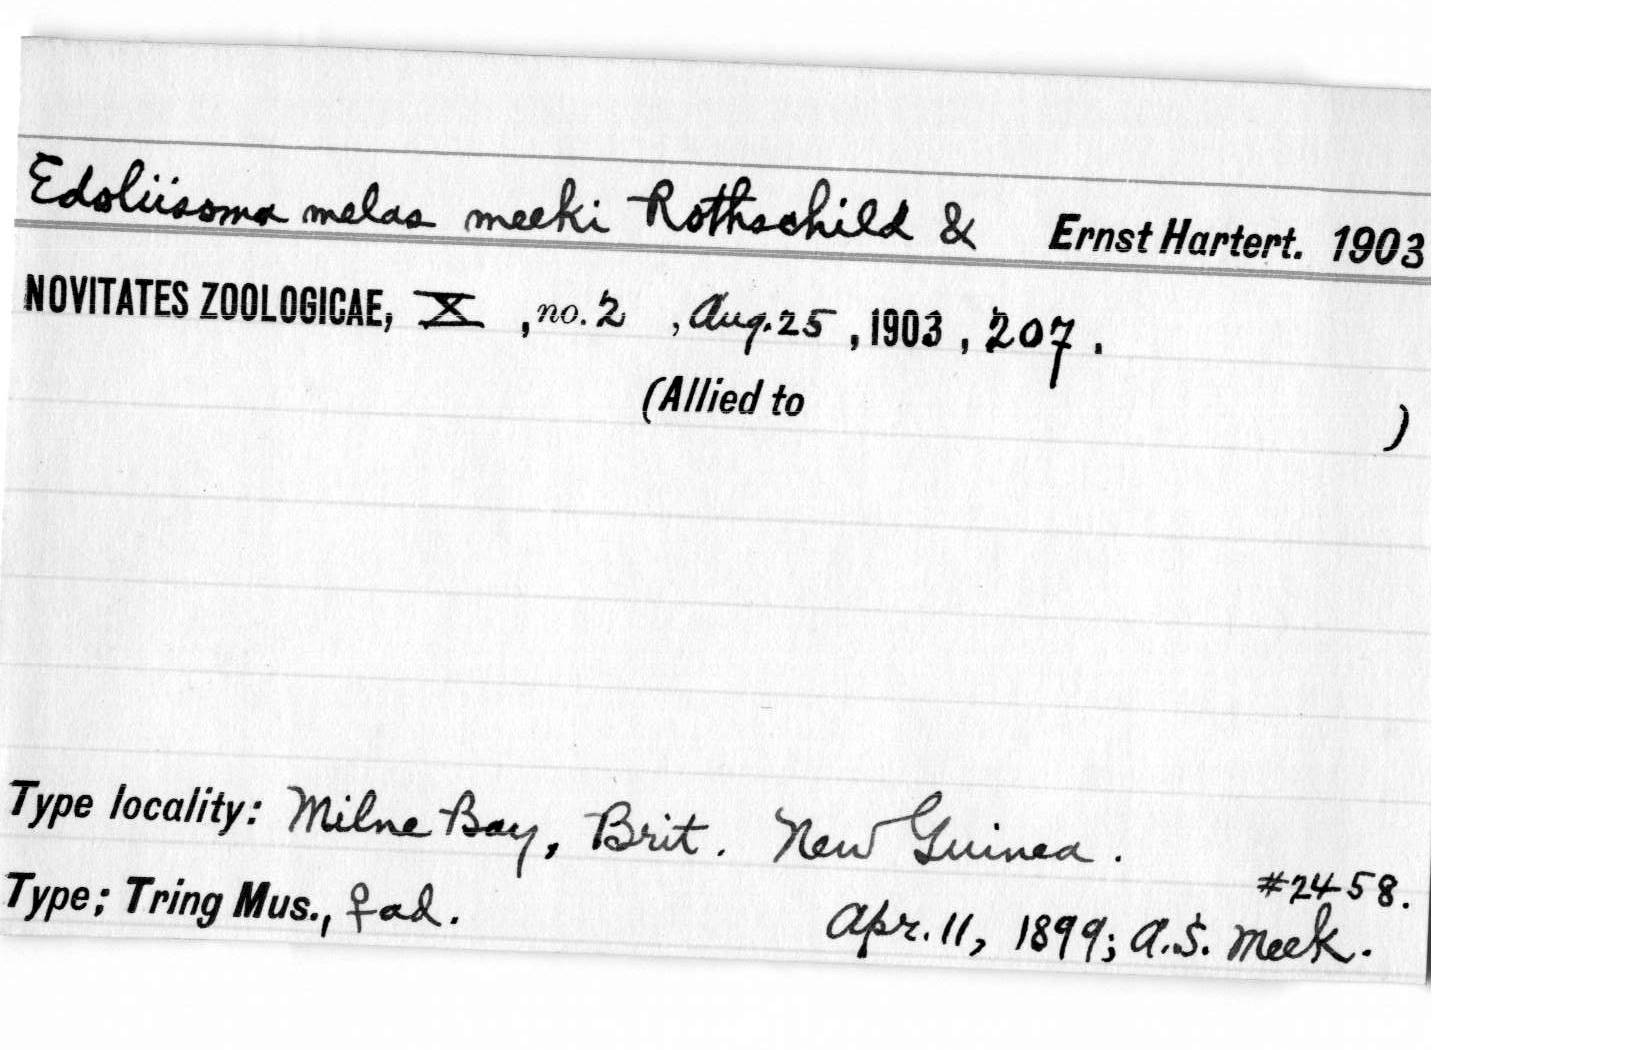 Edoliisoma melas meeki Rothschild & Ernst Hartert. 1903
NOVITATES ZOOLOGICAE, X, no. 2, Aug. 25, 1903, 207.
(Allied to )
Type locality: Milne Bay, Brit. New Guinea.
#2458.
Type; Tring Mus., ♀ ad. Apr. 11, 1899; A.S. Meek.